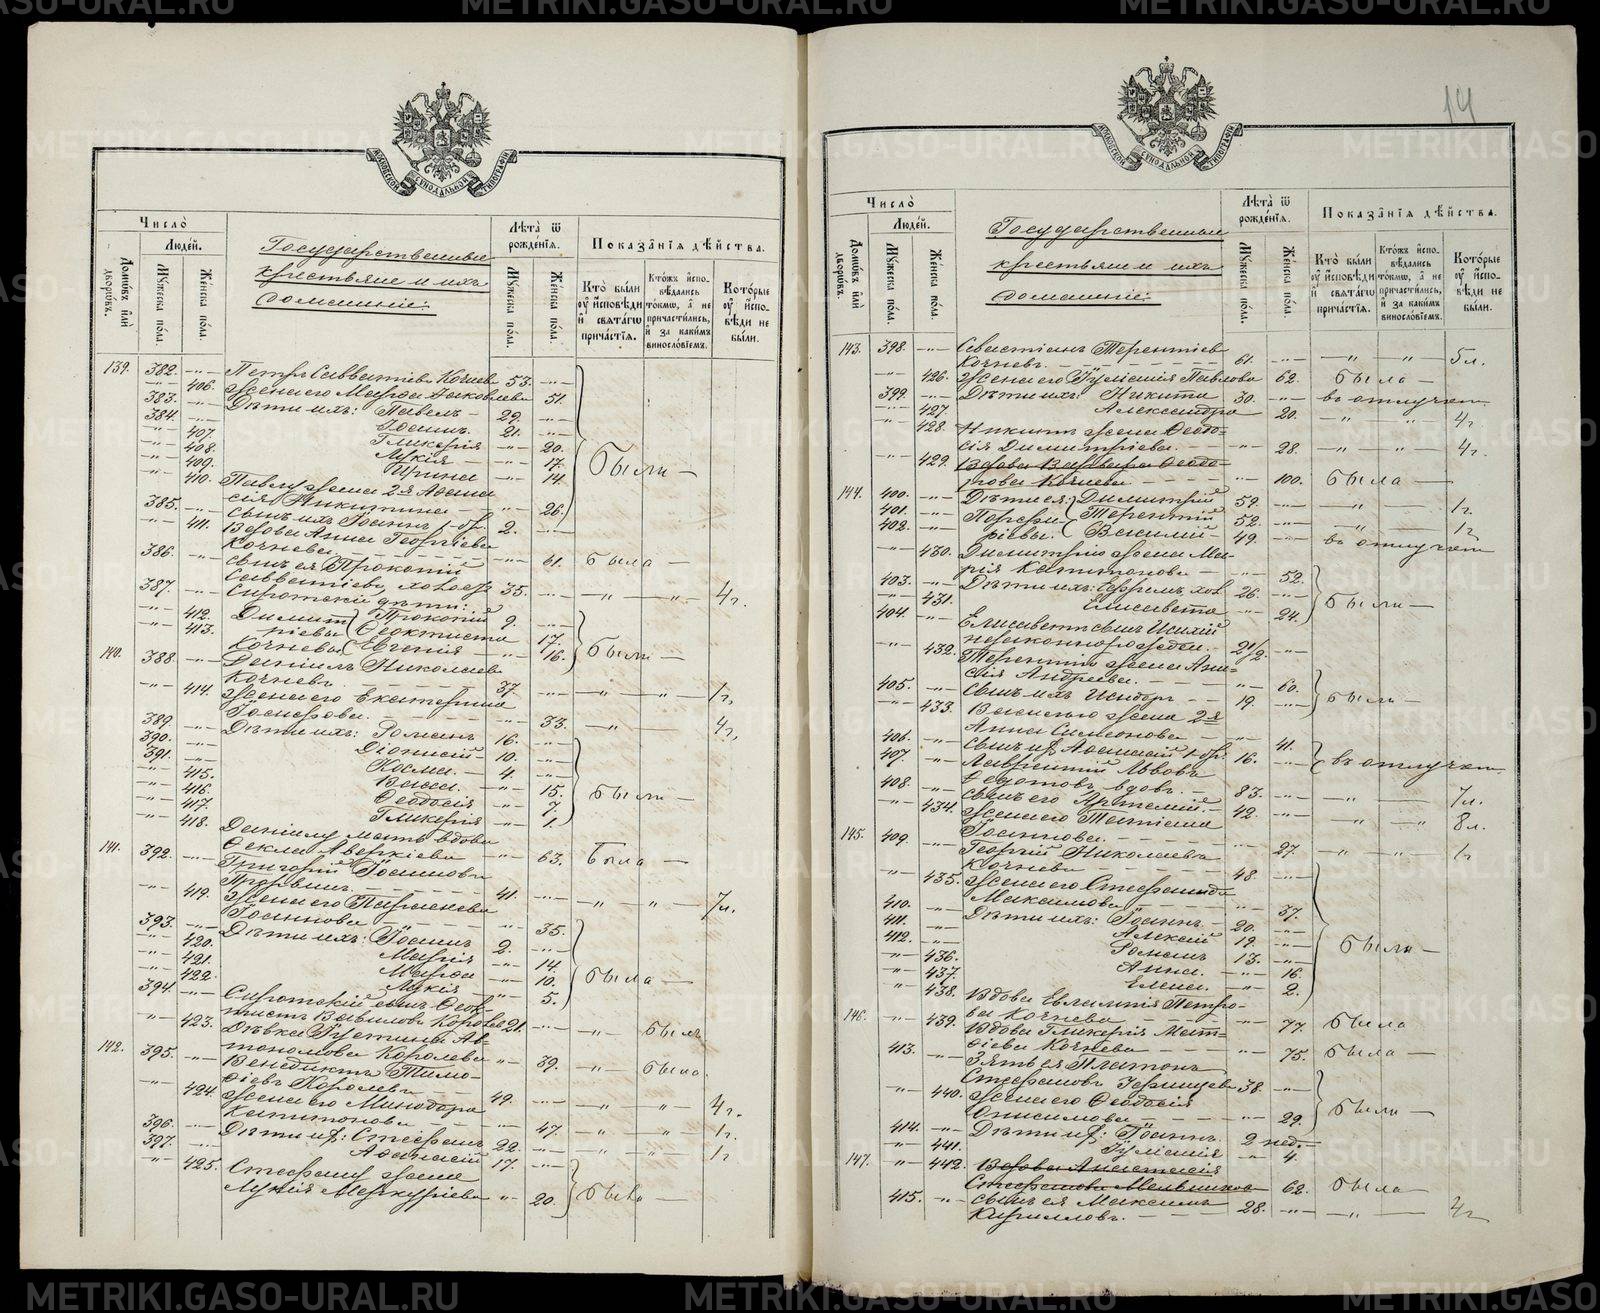 METRIKI.GASO-URAL.RU
14
МОСКОВСКОЙ СѴНОДАЛЬНОЙ ТИПОГРАФІИ
Число̀
Людей.
Домѡвъ или дворѡвъ.
Мꙋжеска пола.
Женска пола.
Государственные
крестьяне и ихъ
домашніе:
Лѣта ѿ рожденїѧ.
Мꙋжеска пола.
Женска пола.
Показанїѧ дѣйства.
Кто были ᲂу исповѣди и свѧтагѡ причастїѧ.
Ктожъ исповѣдались токмѡ, а не причастились, и за какимъ винословїемъ.
Которые ᲂу исповѣди не были.
139. 382. Петръ Савватіевъ Кочневъ 53.
406. Жена его Марѳа Іаковлева 51.
383. Дѣти ихъ: Павелъ 29.
384. Іоаннъ 21.
407. Гликерія 20.
408. Лукія 17. были
409. Ирина 14.
410. Павлу жена 2я
Никитина 26.
385. Сынъ ихъ Іоаннъ 2.
411. Вдова Анна Георгіева
Кочнева 61. была
386. Сынъ ея Прокопій
Савватіевъ, холостъ 35. 4 г.
387. Сиротскіе дѣти:
Прокопій 9.
412. Димитріевы Феоктиста 17. были
413. Кочневы Евгенія 16.
140. 388. Даніилъ Николаевъ
Кочневъ 37. 1 г.
414. Жена его Екатерина
33. 4 г.
389. Дѣти ихъ: Романъ 16.
390. Діонисій 10.
391. Косма 4.
415. 15. были
416. Ѳеодосія 7.
417. Гликерія 1.
418. Даніилу мать вдова
Ѳекла Аверкіева 63. Была
141. 392. Григорій Іоанновъ
41. 7 л.
419. Жена его Параскева
Іоаннова 35.
393. Дѣти ихъ: Іоаннъ 2.
420. Марія 14.
421. Марѳа 10. была
422. Лукія 5.
394. Сиротскій сынъ Ѳеоктистъ
Вавиловъ Королевъ 21. былъ
423. Дѣвка Іустина Автономова
Королева 39. была.
142. 395. Венедиктъ Тимоѳіевъ
Королевъ 49. 4 г.
424. Жена его Минодора
Капитонова 47. 1 г.
396. Дѣти их: Стефанъ 22. 1 г
397. Аѳанасій 17.
425. Стефану жена
Лукія Меркуріева 20. была
Число̀
Людей.
Домѡвъ или дворѡвъ.
Мꙋжеска пола.
Женска пола.
Государственные
крестьяне и ихъ
домашніе:
Лѣта ѿ рожденїѧ.
Мꙋжеска пола.
Женска пола.
Показанїѧ дѣйства.
Кто были ᲂу исповѣди и свѧтагѡ причастїѧ.
Ктожъ исповѣдались токмѡ, а не причастились, и за какимъ винословїемъ.
Которые ᲂу исповѣди не были.
143. 398. Севастіанъ Терентіевъ
Кочневъ 61. 5 л.
426. Жена его Іуліанія Павлова 62. была
399. Дѣти ихъ: Никита 30. въ отлучкѣ
427. Александра 20. 4 г.
428. Никитѣ жена Ѳеодосія
Димитріева 28. 4 г.
429. Вдова Варвара Ѳеодорова
Кочнева 100. была
144. 400. Дѣти ея: Димитрій 59. 1 г.
401. Порфиріевы Терентій 52. 1 г
402. Василій 49. въ отлучкѣ
430. Димитрію жена Марія
Капитонова 52.
403. Дѣти ихъ: Ефремъ, хол. 26. были
431. Елисавета 24.
404. Елисаветы сынъ
незаконнорожден. 2 1/2.
432. Терентію жена Анисія
Андреева 60.
405. Сынъ ихъ Исидоръ 19. были
433. Василью жена 2я
Анна Симеонова 41.
406. Сынъ их Аѳанасій 16. въ отлучкѣ
407. Лаврентій Львовъ
Ѳедотовъ вдовъ 83. 7 л.
408. Сынъ его Артемій 42. 8 л.
434. Жена его Татіана
Іоаннова 27. 1 г
145. 409. Георгій Николаевъ
Кочневъ 48.
435. Жена его Стефанида
Максимова 37.
410. Дѣти ихъ: Іоаннъ 20.
411. Алексій 19. были
412. Романъ 13.
436. Анна 16.
437. Елена 2.
438. Вдова Евлампія Петрова
Кочнева 77. была
146. 439. Вдова Гликерія Матѳіева
Кочнева 75. была
413. Зять ея Платонъ
Стефановъ 38.
440. Жена его Ѳеодосія
Онисимова 29. были
414. Дѣти их: Іоаннъ 2 нед.
441. Іуліанія 4.
147. 442. Вдова Анастасія
Стефанова Мельникова 62. была
415. Сынъ ея Максимъ
Кирилловъ 28. 4 г